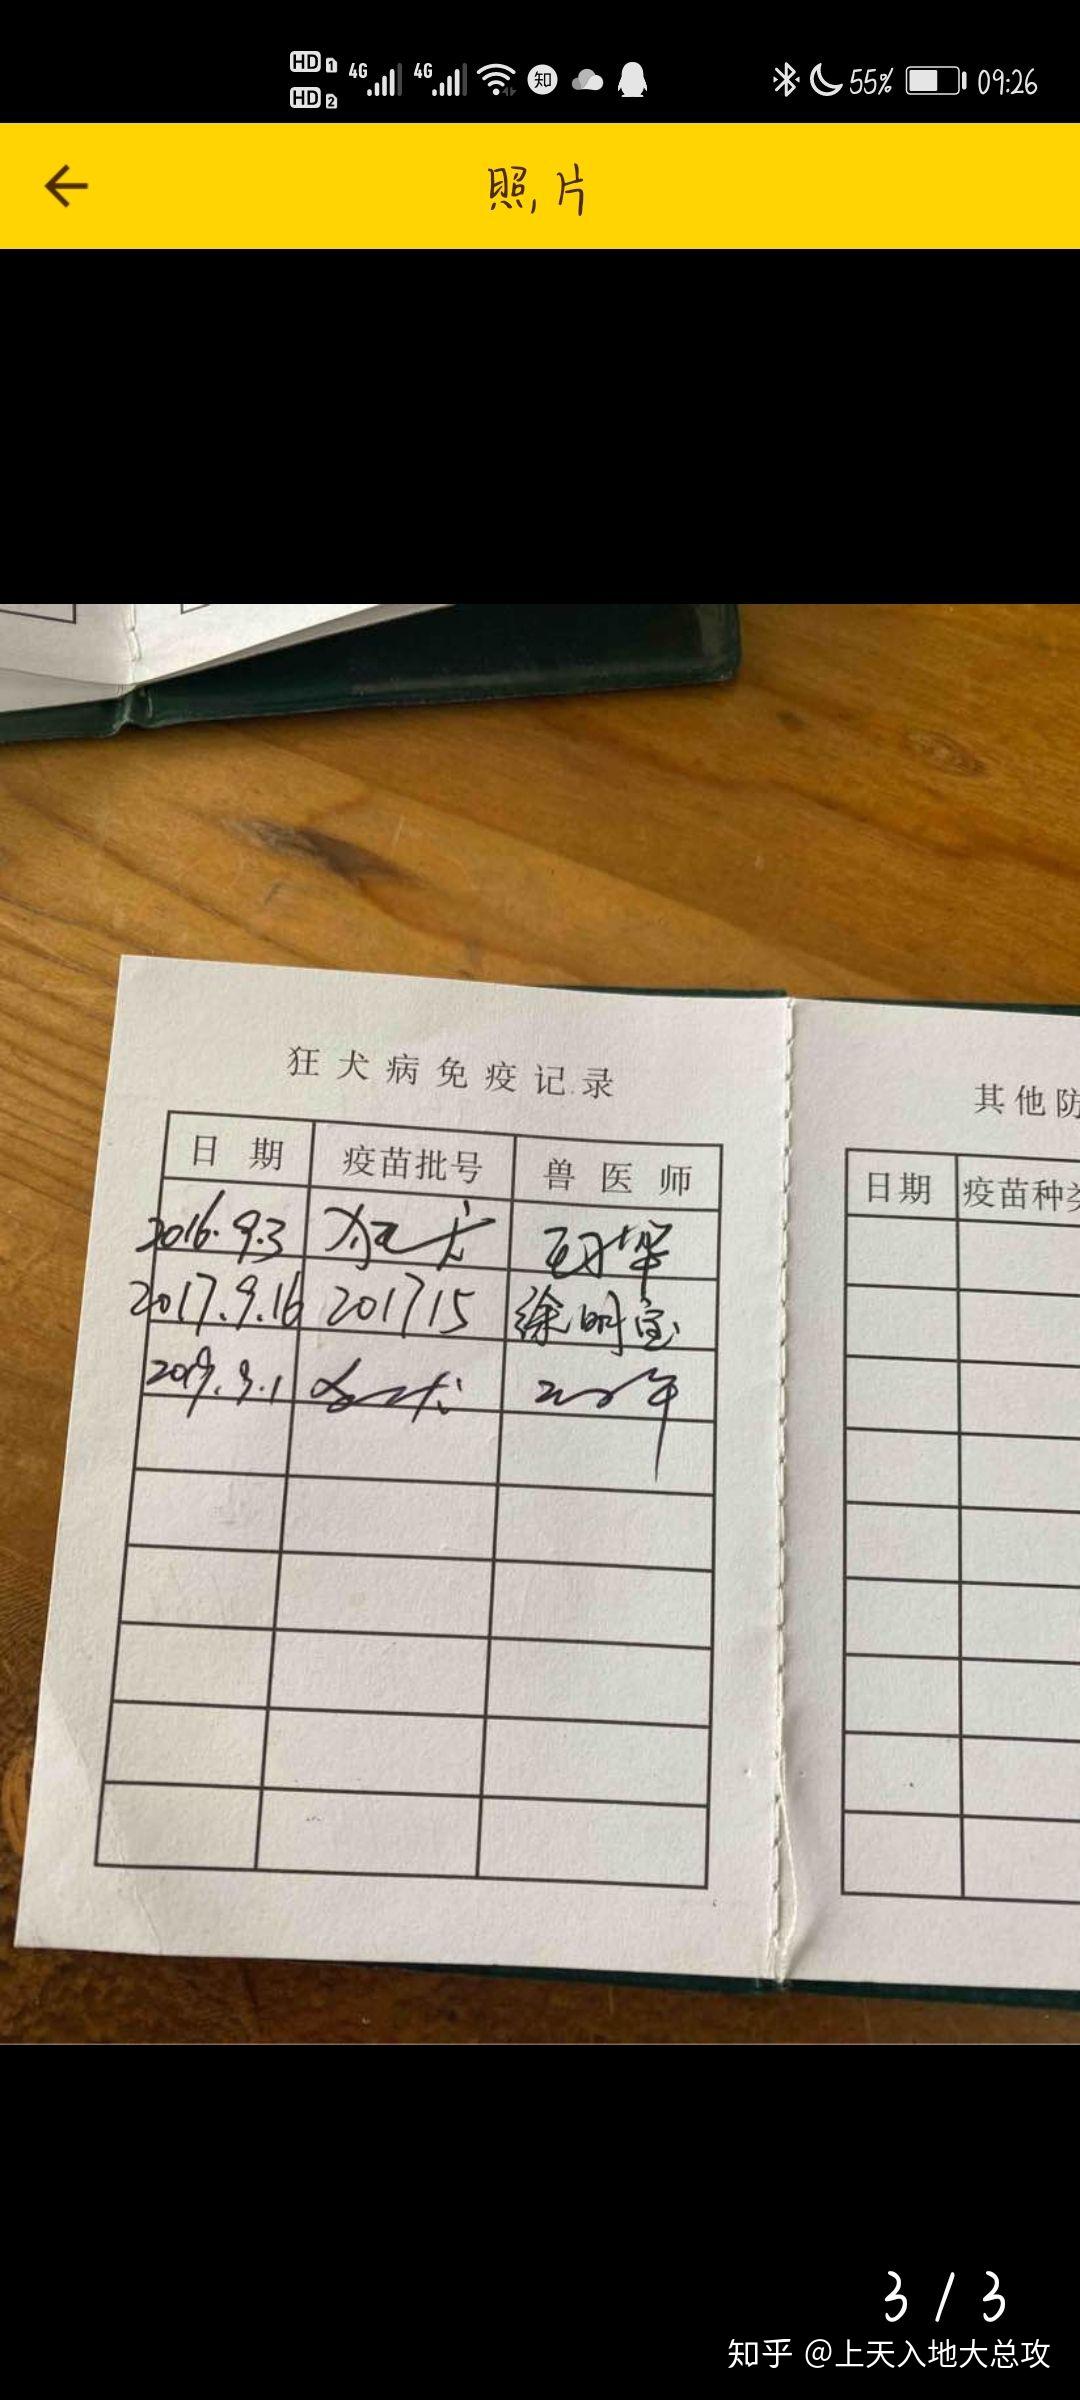 HD 1 4G 4G 知 55% 09:26
HD 2
照片
狂犬病免疫记录
其他防
日期 疫苗批号 兽医师
日期 疫苗种类
2016.9.3 狂犬
2017.9.16 201715 徐明宝
3/3
知乎 @上天入地大总攻